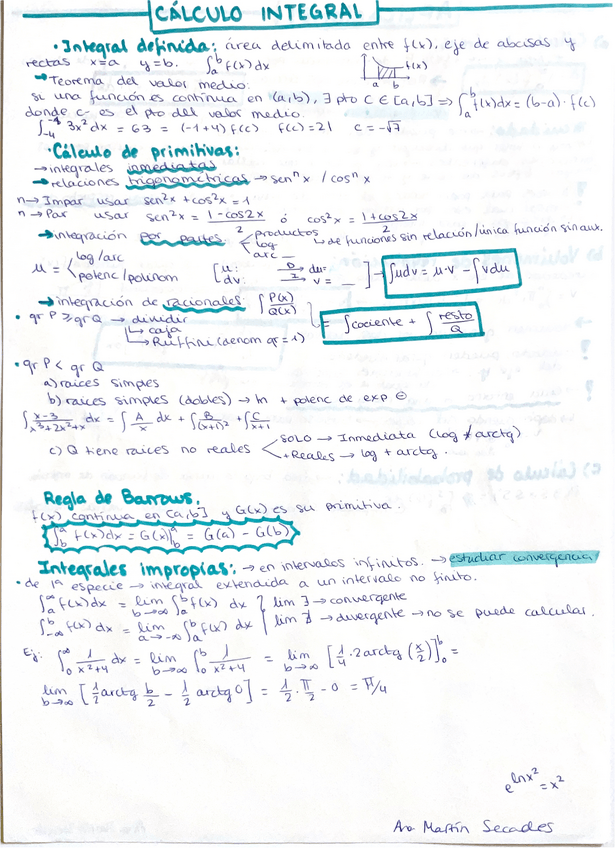 CÁLCULO INTEGRAL
· Integral definida: área delimitada entre f(x), eje de abcisas y
rectas x=a, y=b. ∫ₐᵇ f(x)dx
f(x)
a b
→ Teorema del valor medio:
si una función es continua en (a,b), ∃ pto c ∈ [a,b] ⇒ ∫ₐᵇ f(x)dx = (b-a)·f(c)
donde c es el pto del valor medio.
∫₋₄⁻¹ 3x²dx = 63 = (-1+4) f(c) f(c)=21 c=-√7
· Cálculo de primitivas:
→ integrales inmediatas
→ relaciones trigonométricas → senⁿ x / cosⁿ x
n→ Impar usar sen²x + cos²x = 1
n→ Par usar sen²x = (1-cos2x)/2 ó cos²x = (1+cos2x)/2
→ integración por partes < productos log arc — ↳ de funciones sin relación/única función sin aux.
μ = < log/arc potenc/polinom [μ: → du= dv: → v= — ] → ∫μdv = μ·v - ∫vdμ
→ integración de racionales ∫ P(x)/Q(x)
· gr P ≥ gr Q → dividir = ∫cociente + ∫ resto/Q
↳ caja
↳ Ruffini (denom gr=1)
· gr P < gr Q
a) raíces simples
b) raíces simples (dobles) → ln + potenc de exp ⊖
∫ (x-3)/(x³+2x²+x) dx = ∫ A/x dx + ∫ B/(x+1)² + ∫ C/(x+1)
c) Q tiene raíces no reales < SOLO → Inmediata (log ≠ arctg)
+Reales → log + arctg.
Regla de Barrows.
f(x) continua en [a,b] y G(x) es su primitiva.
∫ᵇᵃ f(x)dx = G(x)]ᵇᵃ = G(a) - G(b)
Integrales impropias: → en intervalos infinitos. → estudiar convergencia
· de 1ª especie → integral extendida a un intervalo no finito.
∫ₐ^∞ f(x)dx = lim b→∞ ∫ₐᵇ f(x) dx } lim ∃ → convergente
∫₋∞ᵇ f(x)dx = lim a→-∞ ∫ₐᵇ f(x) dx } lim ∄ → divergente → no se puede calcular.
Ej: ∫₀^∞ 1/(x²+4) dx = lim b→∞ ∫₀ᵇ 1/(x²+4) = lim b→∞ [1/4 · 2arctg (x/2)]₀ᵇ =
lim b→∞ [1/2 arctg b/2 - 1/2 arctg 0] = 1/2 · π/2 - 0 = π/4
e^(lnx²) = x²
Ana Martín Secades